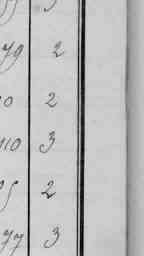 79 2
0 2
110 3
5 2
77 3